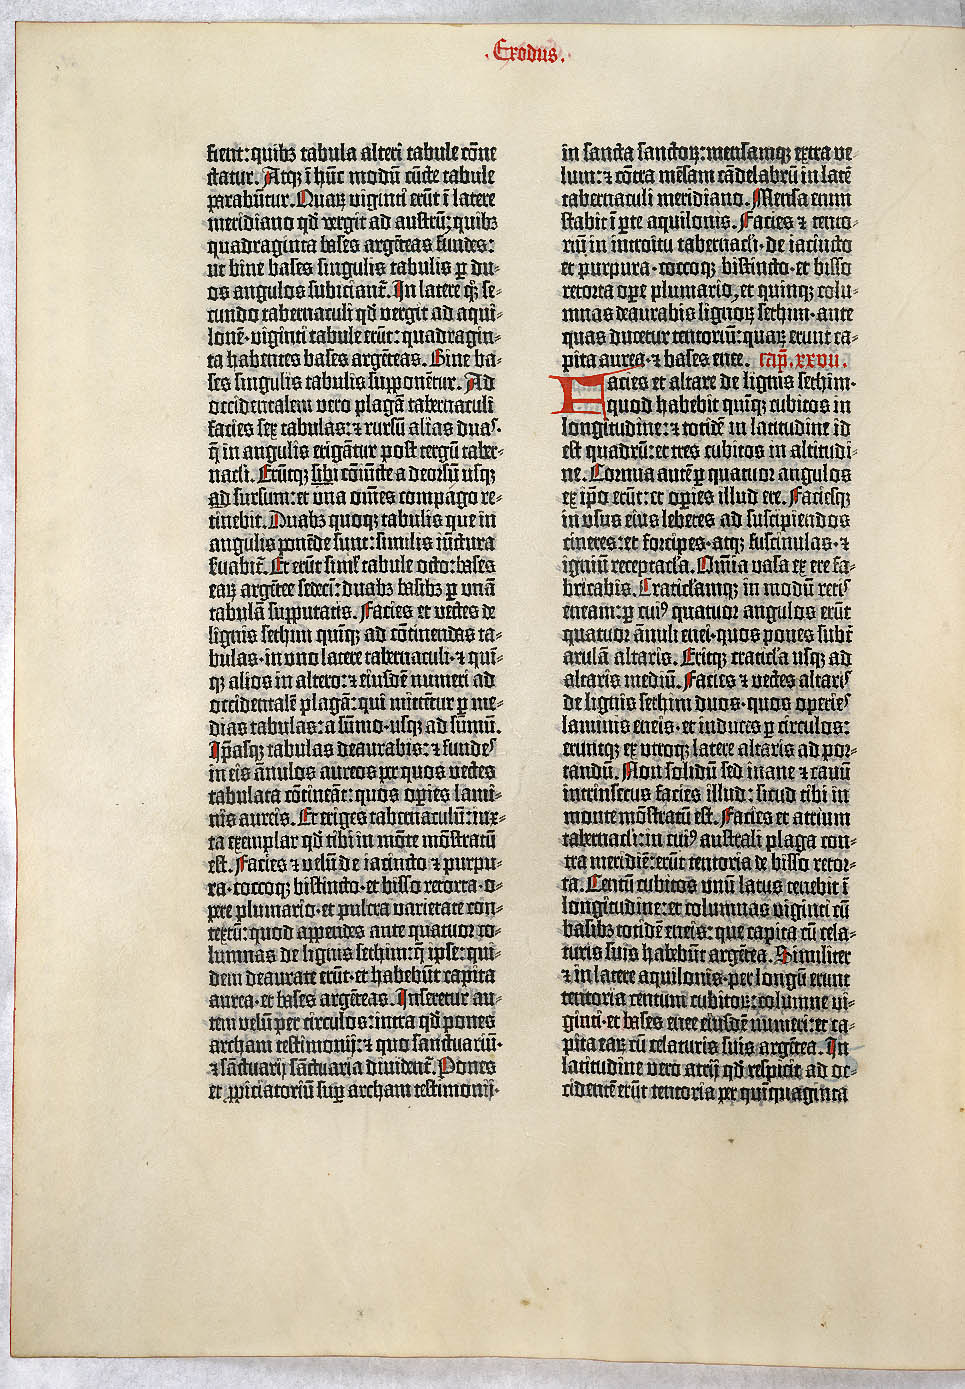 .Exodus.
fient: quibꝫ tabula alteri tabule cōne
ctatur. Atqꝫ ī hūc modū cūcte tabule
parabūtur. Quaꝝ viginti erūt ī latere
meridiano qd̄ vergit ad austrū: quibꝫ
quadraginta bases argēteas fundes:
ut bine bases singulis tabulis ꝑ du-
os angulos subiciant̄. In latere qꝫ se-
cundo tabernaculi qd̄ vergit ad aqui-
lonē· viginti tabule erūt: quadragin-
ta habentes bases argēteas. Bine ba-
ses singulis tabulis supponētur. Ad
occidentalem vero plagā tabernaculi
facies sex tabulas: ⁊ rursū alias duas·
q̄ in angulis erigātur post tergū taber-
nacli. Erūtqꝫ sibi cōiūcte a deorsū usqꝫ
ad sursum: et una om̄es compago re-
tinebit. Duabꝫ quoqꝫ tabulis que in
angulis ponēde sunt: similis iūctura
seruabit̄. Et erūt siml̄ tabule octo: bases
eaꝝ argētee sedecī: duabꝫ basibꝫ ꝑ unā
tabulā supputatis. Facies et vectes de
lignis sethim quīqꝫ ad cōtinendas ta-
bulas· in uno latere tabernaculi· ⁊ quī-
qꝫ alios in altero: ⁊ eiusdē numeri ad
occidentalē plagā: qui mittētur ꝑ me-
dias tabulas: a sūmo· usqꝫ ad sūmū.
Ip̄asqꝫ tabulas deaurabis: ⁊ fundes
in eis ānulos aureos per quos vectes
tabulata cōtineāt: quos opies lami-
nis aureis. Et eriges tabernaculū: iux-
ta exemplar qd̄ tibi in mōte mōstratū
est. Facies ⁊ velū de iacincto ⁊ purpu-
ra· coccoqꝫ bistincto· et bisso retorta· o-
pere plumario· et pulcra varietate con-
textū: quod appendes ante quatuor co-
lumnas de lignis sethim: q̄ ipse: qui-
dem deaurate erūt· et habebūt capita
aurea· et bases argēteas. Inseretur au-
tem velū per circulos: intra qd̄ pones
archam testimonij: ⁊ quo sanctuariū·
⁊ sāctuarij sāctuaria dividentꝰ. Pones
et ꝓpiciatoriū suꝑ archam testimonij·
in sancta sanctoꝝ: mensamqꝫ extra ve-
lum: ⁊ cōtra mēsam cādelabrū in latē
tabernaculi meridiano. Mensa enim
stabit ī ꝑte aquilonis. Facies ⁊ tento-
riū in introitu tabernacli· de iacincto
et purpura· coccoqꝫ bistincto· et bisso
retorta oꝑe plumario, et quinqꝫ colu-
mnas deaurabis lignoꝝ sethim· ante
quas ducetur tentoriū: quaꝝ erunt ca-
pita aurea· ⁊ bases enee. Cap̄. xxvii.
Facies et altare de lignis sethim·
quod habebit quīqꝫ cubitos in
longitudine: ⁊ totidē in latitudine id
est quadrū: et tres cubitos in altitudi-
ne. Cornua autē ꝑ quatuor angulos
ex ip̄o erūt: et opies illud ere. Faciesqꝫ
in usus eius lebetes ad suscipiendos
cineres: et forcipes· atqꝫ fuscinulas· ⁊
igniū receptacla. Om̄ia vasa ex ere fa-
bricabis. Craticlamqꝫ in modū retis
eneam: ꝑ cuiꝰ quatuor angulos erūt
quatuor ānuli enei· quos pones subt̄
arulā altaris. Eritqꝫ craticla usqꝫ ad
altaris mediū. Facies ⁊ vectes altaris
de lignis sethim duos· quos operies
laminis eneis· et induces ꝑ circulos:
eruntqꝫ ex utroqꝫ latere altaris ad por-
tandū. Non solidū sed inane ⁊ cavū
intrinsecus facies illud: sicud tibi in
monte mōstratū est. Facies et atrium
tabernacli: in cuiꝰ australi plaga con-
tra meridiē: erūt tentoria de bisso retor-
ta. Centū cubitos unū latus tenebit ī
longitudine: et columnas viginti cū
basibꝫ totidē eneis: que capita cū cela-
turis suis habebūt argētea. Similiter
⁊ in latere aquilonis· per longū erunt
tentoria centum cubitoꝝ: columne vi-
ginti· et bases enee eiusdē numeri: et ca-
pita eaꝝ cū celaturis suis argētea. In
latitudine vero atrij qd̄ respicit ad oc-
cidentē erūt tentoria per quīquaginta